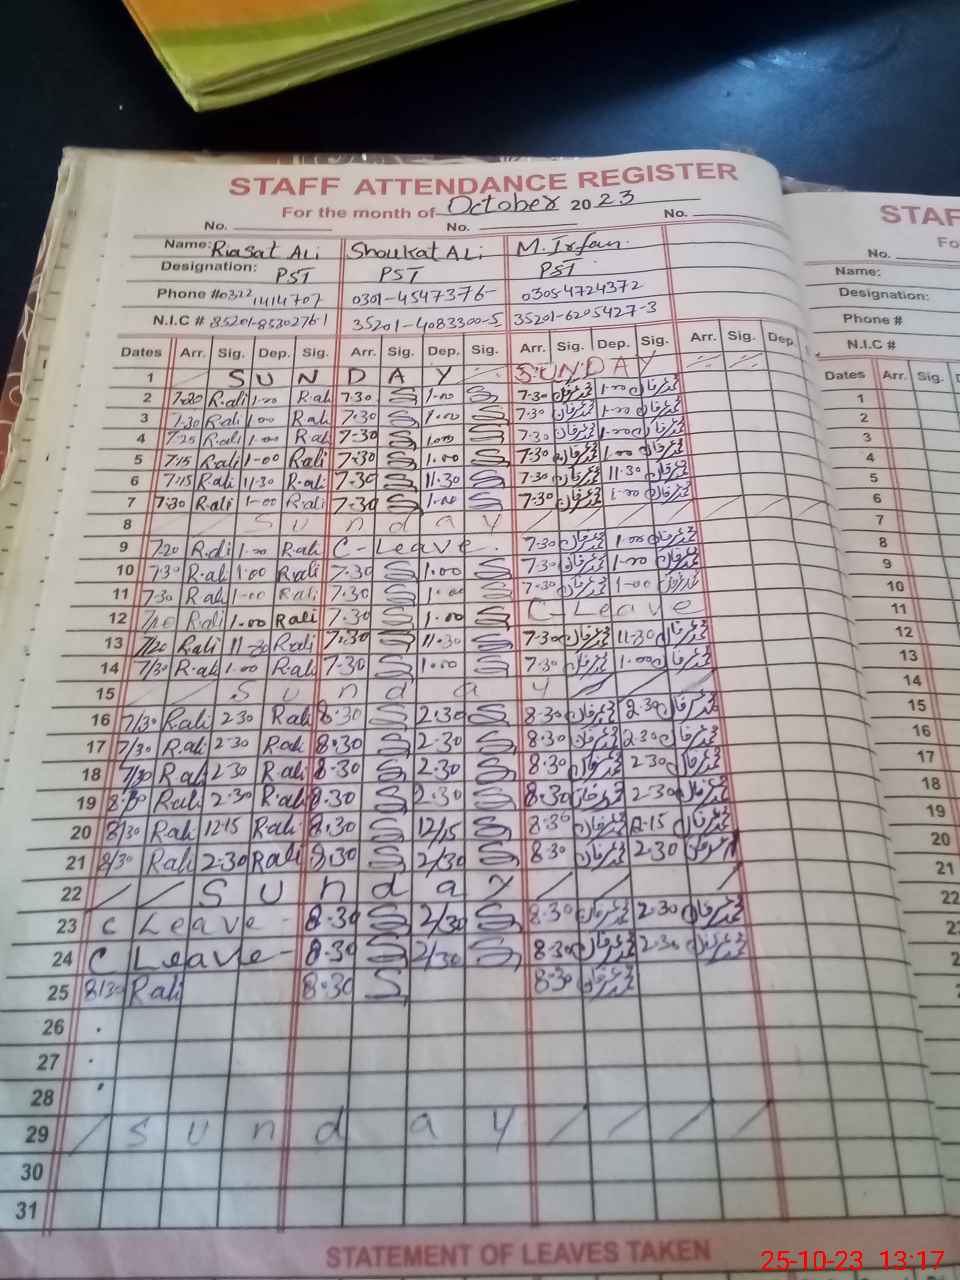 STAFF ATTENDANCE REGISTER
For the month of October 2023
No. No. No.
Name: Riasat Ali Shoukat Ali M. Irfan.
Designation: PST PST PST.
Phone # 0301-4547376 03054724372
N.I.C # 35201-4083300-5 35201-6205427-3
Dates Arr. Sig. Dep. Sig. Arr. Sig. Dep. Sig. Arr. Sig. Dep. Sig. Arr. Sig. Dep.
1 SUNDAY SUNDAY
2 7:20 R.ali 1-00 R.ali 7.30 1.00 7.30 محمد عرفان 1-00 محمد عرفان
3 7.30 R.ali 1.00 R.ali 7.30 1.00 7.30 محمد عرفان 1-00 محمد عرفان
4 7/25 R.ali 1.00 R.ali 7.30 1.00 7.30 محمد عرفان 1-00 محمد عرفان
5 7:15 R.ali 1-00 R.ali 7.30 1.00 7.30 محمد عرفان 1.00 محمد عرفان
6 7:15 R.ali 11.30 R.ali 7.30 11.30 7.30 محمد عرفان 11.30 محمد عرفان
7 7:30 R.ali 1-00 R.ali 7.30 1.00 7.30 محمد عرفان 1-00 محمد عرفان
8 Sunday
9 7.20 R.ali 1-00 R.ali C-Leave. 7.30 محمد عرفان 1.00 محمد عرفان
10 7.30 R.ali 1.00 R.ali 7.30 1.00 7.30 محمد عرفان 1-00 محمد عرفان
11 7.30 R.ali 1-00 R.ali 7.30 1.00 7.30 محمد عرفان 1-00 محمد عرفان
12 R.ali 1.00 R.ali 7.30 1.00 C-Leave
13 7/20 R.ali 11-30 R.ali 7.30 11.30 7.30 محمد عرفان 11-30 محمد عرفان
14 7/30 R.ali 1.00 R.ali 7.30 1.00 7.30 محمد عرفان 1.00 محمد عرفان
15 Sunday
16 7/30 Rali 2.30 Rali 8.30 2.30 8.30 محمد عرفان 2.30 محمد عرفان
17 7/30 R.ali 2-30 R.ali 8.30 2.30 8.30 محمد عرفان 2.30 محمد عرفان
18 7/30 R.ali 2.30 R.ali 8.30 2.30 8.30 محمد عرفان 2.30 محمد عرفان
19 8.30 R.ali 2.30 R.ali 8.30 2.30 8.30 محمد عرفان 2.30 محمد عرفان
20 8/30 Rali 12.15 Rali 8.30 12/15 8.30 محمد عرفان 12.15 محمد عرفان
21 8/30 Rali 2.30 Rali 8.30 2/30 8.30 محمد عرفان 2.30
22 Sunday
23 C Leave - 8.30 2/30 8.30 محمد عرفان 2.30 محمد عرفان
24 C Leave - 8.30 2/30 8.30 محمد عرفان 2.30 محمد عرفان
25 8/30 Rali 8.30 8.30 محمد عرفان
26
27
28
29 Sunday
30
31
STATEMENT OF LEAVES TAKEN
STAF
Fo
No.
Name:
Designation:
Phone #
N.I.C #
Dates Arr. Sig. D
1
2
3
4
5
6
7
8
9
10
11
12
13
14
15
16
17
18
19
20
21
22
24
25
26
27
25-10-23 13:17